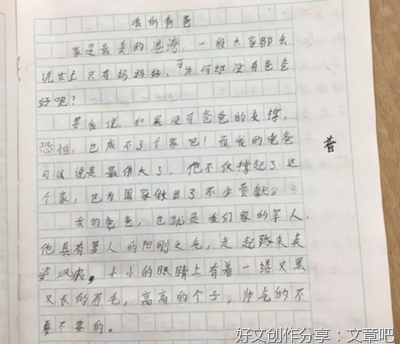 我的爸爸
家是最美的港湾，一般大家都会
说世上只有妈妈好，可为何却没有爸爸
好呢？
要我说，如果没有爸爸的支撑，
恐怕，也成不了个家吧！而我的爸爸
可以说是最伟大了，他不仅撑起了这
个家，也为国家做出了不少贡献。
普
我的爸爸，也就是我们家的军人，
他具有军人的阳刚之气，走起路来
小小的眼睛上有着一缕又黑
又长的眉毛，高高的个子，帅气的不
要不要的。
好文创作分享：文章吧